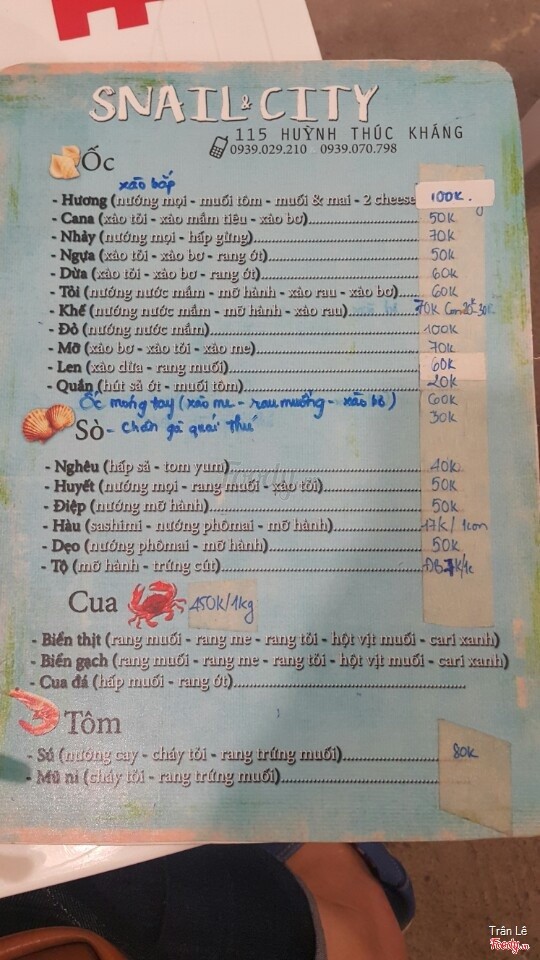 SNAIL & CITY
115 HUỲNH THÚC KHÁNG
0939.029.210 - 0939.070.798
Ốc
xào bắp
- Hương (nướng mọi - muối tôm - muối & mai - 2 cheese 100K.
- Cana (xào tỏi - xào mắm tiêu - xào bơ) 50K
- Nhảy (nướng mọi - hấp gừng) 70K
- Ngựa (xào tỏi - xào bơ - rang ớt) 50K
- Dừa (xào tỏi - xào bơ - rang ớt) 60K
- Tỏi (nướng nước mắm - mỡ hành - xào rau - xào bơ) 60K
- Khế (nướng nước mắm - mỡ hành - xào rau) 70K
- Đỏ (nướng nước mắm) 100K
- Mỡ (xào bơ - xào tỏi - xào me) 70K
- Len (xào dừa - rang muối) 60K
- Quắn (hút sả ớt - muối tôm) 20K
Ốc móng tay (xào me - rau muống - xào bơ) 60K
Sò - chân gà quái thú 30K
- Nghêu (hấp sả - tom yum) 40K
- Huyết (nướng mọi - rang muối - xào tỏi) 50K
- Điệp (nướng mỡ hành) 50K
- Hàu (sashimi - nướng phômai - mỡ hành) 17K/1con
- Dẹo (nướng phômai - mỡ hành) 50K
- Tộ (mỡ hành - trứng cút)
Cua 450K/1kg
- Biển thịt (rang muối - rang me - rang tỏi - hột vịt muối - cari xanh)
- Biển gạch (rang muối - rang me - rang tỏi - hột vịt muối - cari xanh)
- Cua đá (hấp muối - rang ớt)
Tôm
- Sú (nướng cay - cháy tỏi - rang trứng muối) 80K
- Mũ ni (cháy tỏi - rang trứng muối)
Trân Lê
Foody.vn